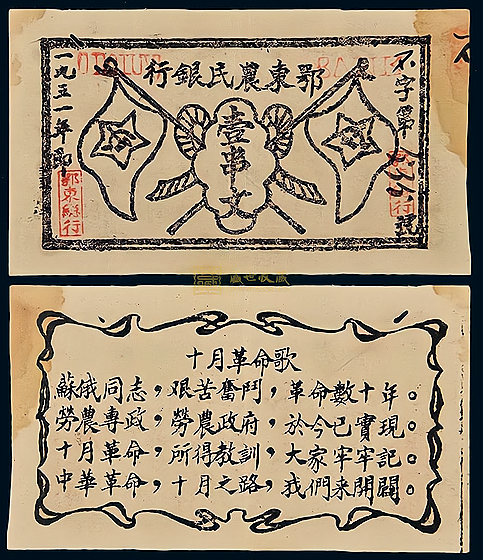 鄂東農民銀行
壹串文
不字第
號
一九五一年印
十月革命歌
蘇俄同志，艱苦奮鬥，革命數十年。
勞農專政，勞農政府，於今已實現。
十月革命，所得教訓，大家牢牢記。
中華革命，十月之路，我們来開闢。